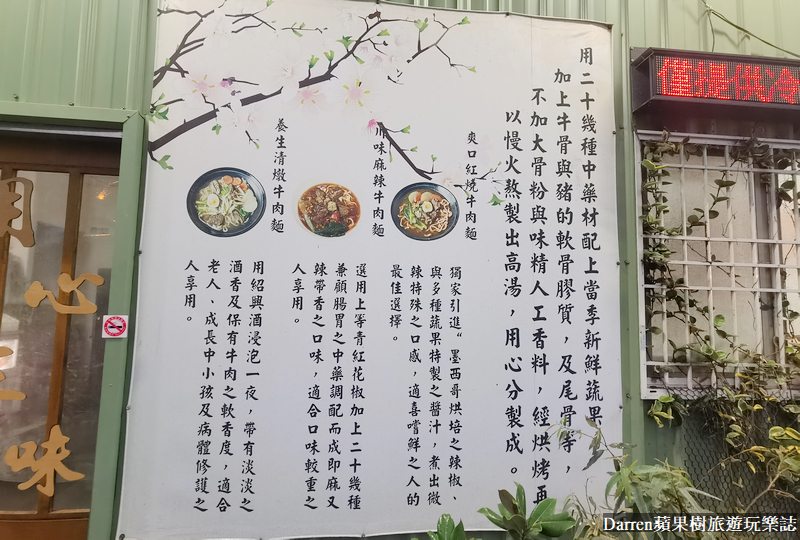 用二十幾種中藥材配上當季新鮮蔬果
加上牛骨與豬的軟骨膠質，及尾骨等，
不加大骨粉與味精人工香料，經烘烤再
以慢火熬製出高湯，用心分製成。
爽口紅燒牛肉麵
獨家引進"墨西哥烘培之辣椒、
與多種蔬果特製之醬汁，煮出微
辣特殊之口感，適喜嚐鮮之人的
最佳選擇。
川味麻辣牛肉麵
選用上等青紅花椒加上二十幾種
兼顧腸胃之中藥調配而成即麻又
辣帶香之口味，適合口味較重之
人享用。
養生清燉牛肉麵
用紹興酒浸泡一夜，帶有淡淡之
酒香及保有牛肉之軟香度，適合
老人、成長中小孩及病體修護之
人享用。
僅提供冷
用心
味
Darren蘋果樹旅遊玩樂誌